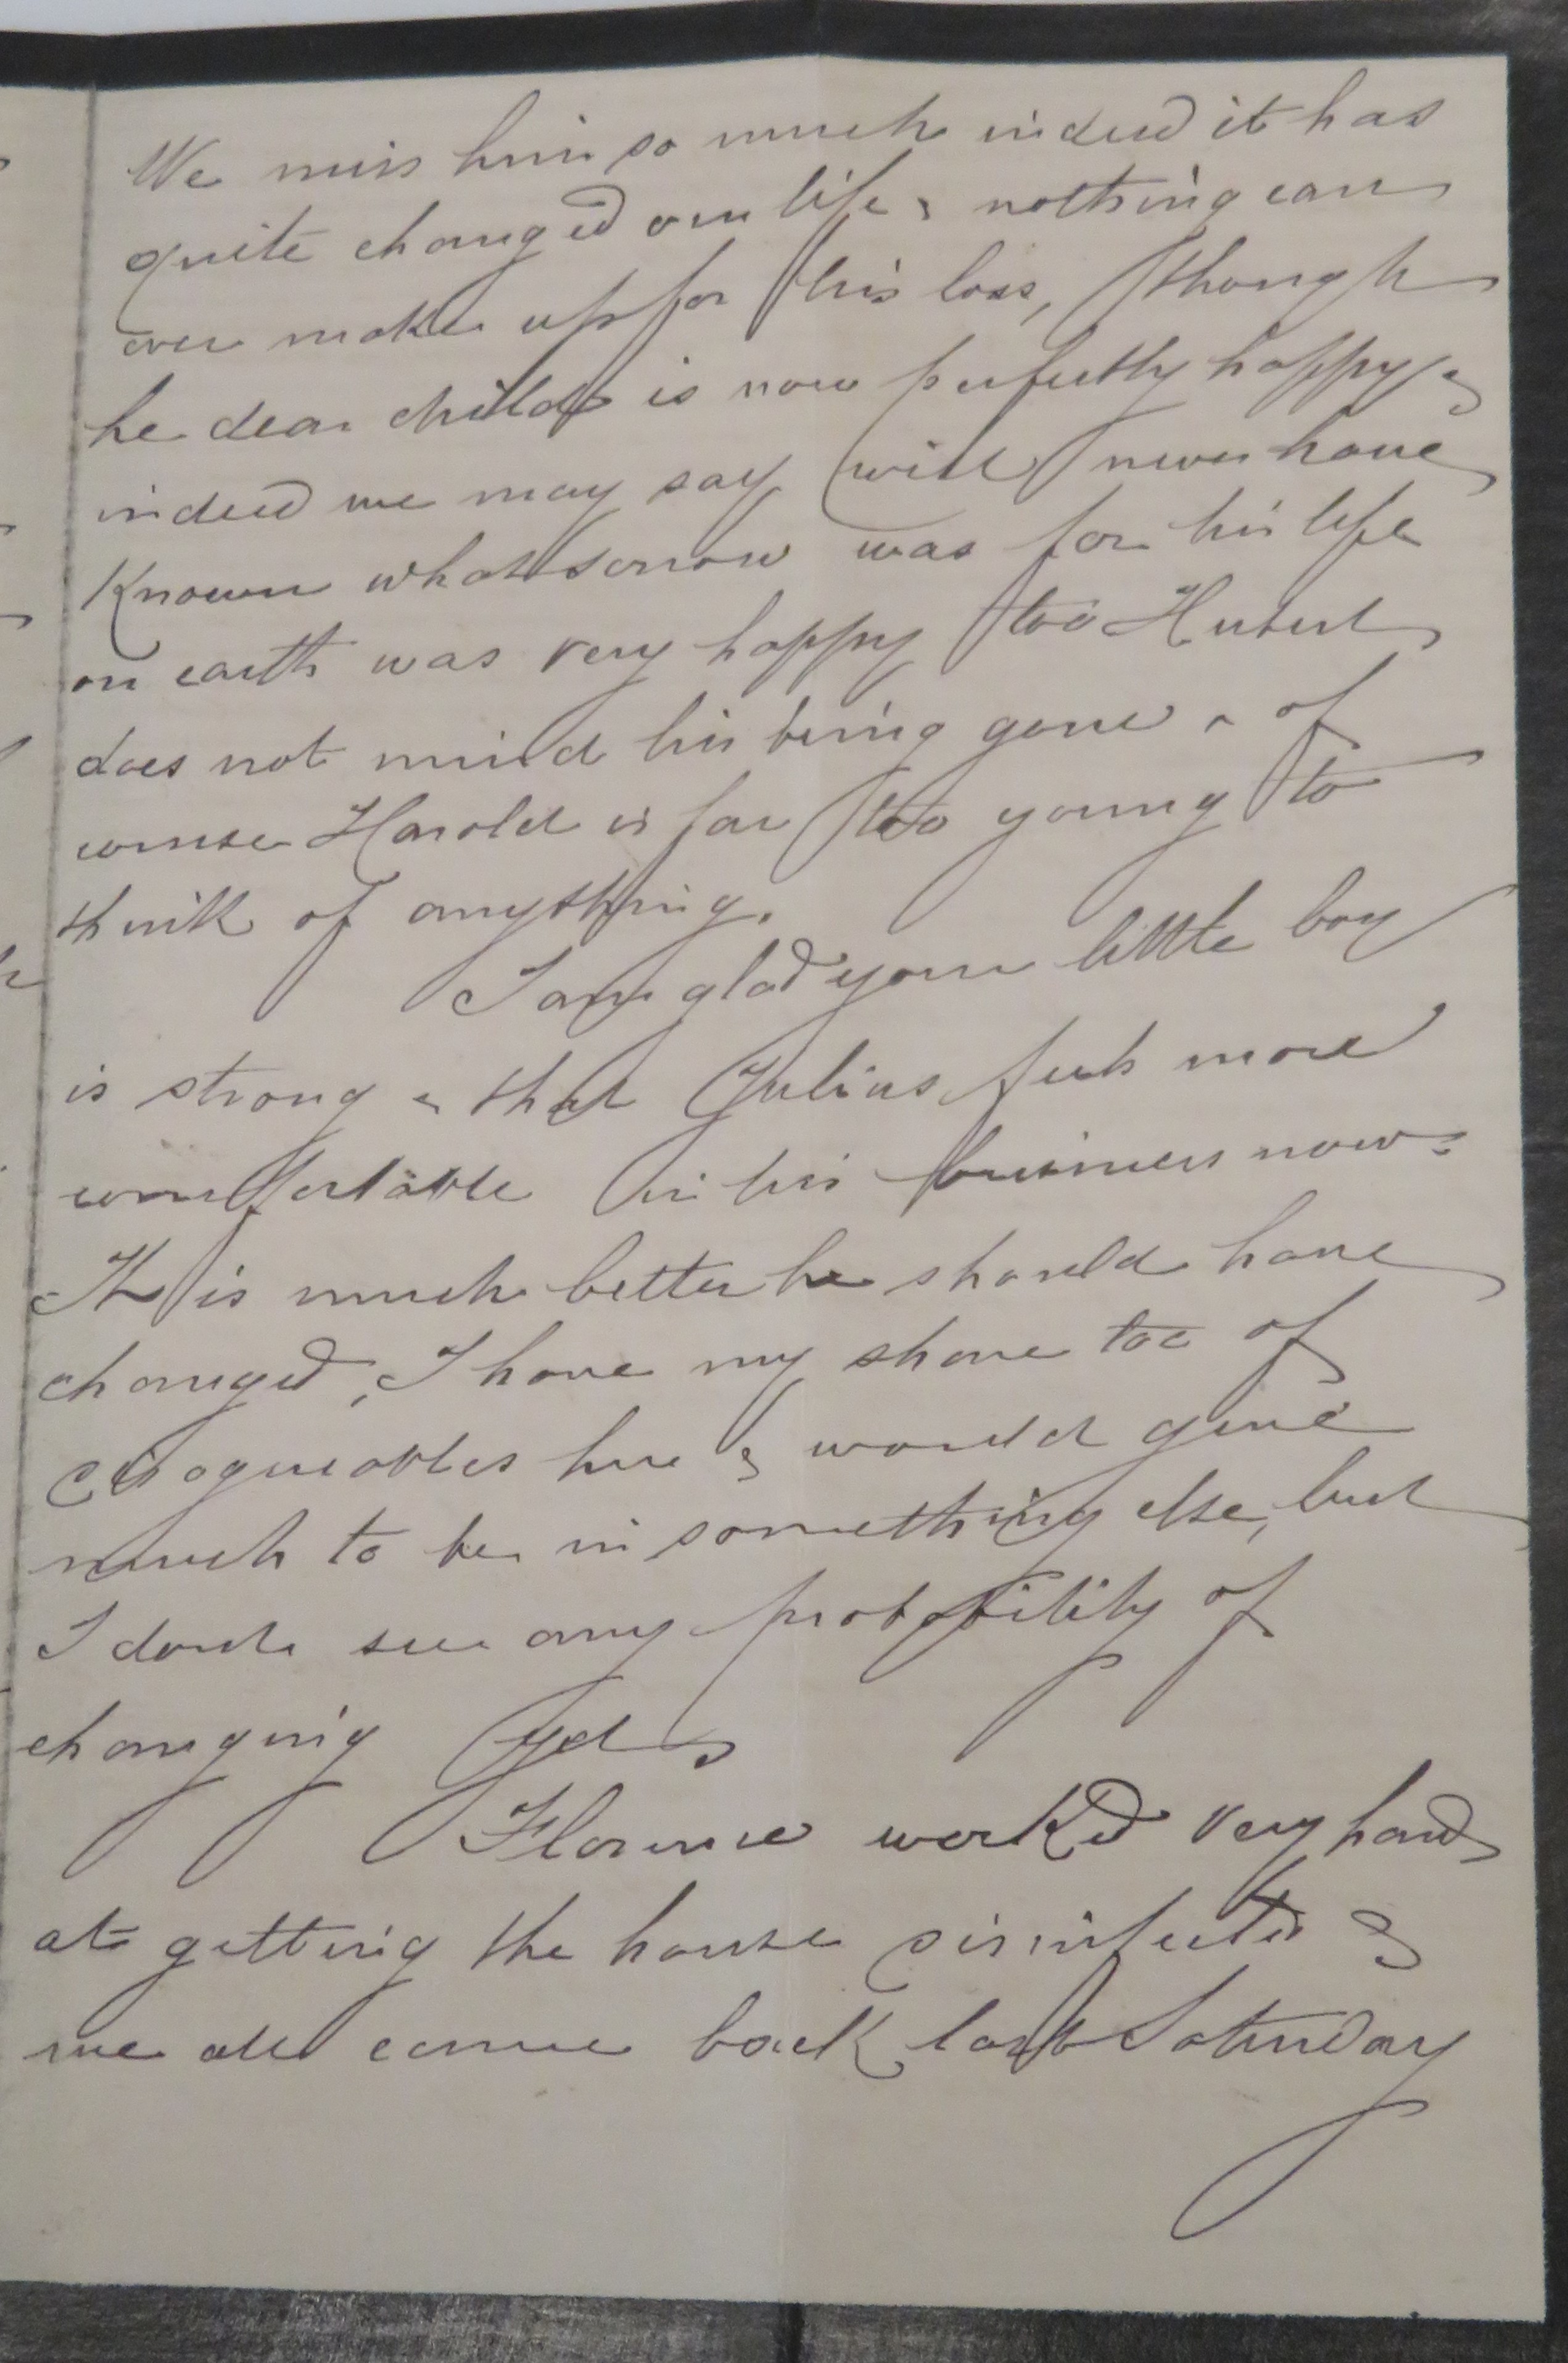 We miss him so much indeed it has
quite changed our life & nothing can
ever make up for his loss, though
he dear child is now perfectly happy &
indeed we may say will never have
known what sorrow was for his life
on earth was very happy too Hubert
does not mind his being gone & of
course Harold is far too young to
think of anything.
I am glad your little boy
is strong & that Julius feels more
comfortable in his business now.
It is much better he should have
changed, I have my share too of
disagreeables here & would give
much to be in something else, but
I dont see any probability of
changing yet
Florence worked very hard
at getting the house disinfected &
we all came back last Saturday